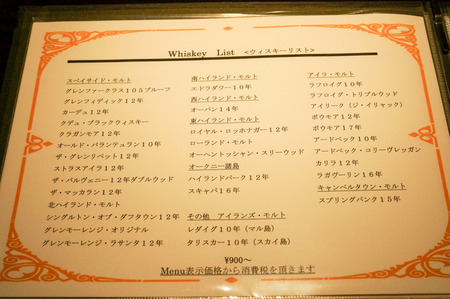 Whiskey List <ウィスキーリスト>
スペイサイド・モルト
グレンファークラス105プルーフ
グレンフィディック12年
カーデュ12年
クデュ・ブラックウィスキー
クラガンモア12年
オールド・バランテュラン10年
ザ・グレンリベット12年
ストラスアイラ12年
ザ・バルヴェニー12年ダブルウッド
ザ・マッカラン12年
北ハイランド・モルト
シングルトン・オブ・ダフタウン12年
グレンモーレンジ・オリジナル
グレンモーレンジ・ラサンタ12年
南ハイランド・モルト
エドラダワー10年
西ハイランド・モルト
オーバン14年
東ハイランド・モルト
ロイヤル・ロッホナガー12年
ローランド・モルト
オーヘントッシャン・スリーウッド
オークニー諸島
ハイランドパーク12年
スキャパ16年
その他 アイランズ・モルト
レダイグ10年(マル島)
タリスカー10年(スカイ島)
アイラ・モルト
ラフロイグ10年
ラフロイグ・トリプルウッド
アイリーク(ジ・イリャック)
ボウモア12年
ボウモア17年
アードベック10年
アードベック・コリーヴレッガン
カリラ12年
ラガヴーリン16年
キャンベルタウン・モルト
スプリングバンク15年
¥900～
Menu表示価格から消費税を頂きます